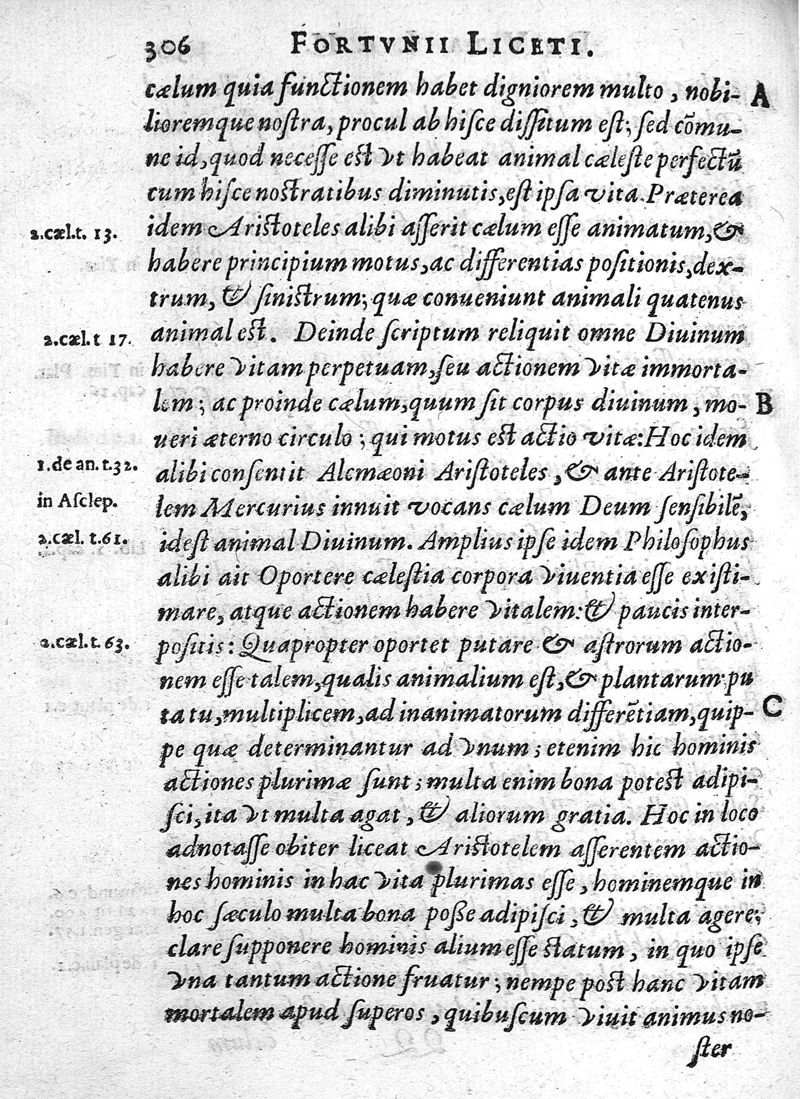 306 FORTVNII LICETI.
cælum quia functionem habet digniorem multo, nobi- A
lioremque nostra, procul ab hisce dissitum est; sed cōmu-
ne id, quod necesse est vt habeat animal cæleste perfectū
cum hisce nostratibus diminutis, est ipsa vita. Præterea
2.cæl.t. 13. idem Aristoteles alibi asserit cælum esse animatum, &
habere principium motus, ac differentias positionis, dex-
trum, & sinistrum; quæ conueniunt animali quatenus
2.cæl.t 17. animal est. Deinde scriptum reliquit omne Diuinum
habere vitam perpetuam, seu actionem vitæ immorta-
lem; ac proinde cælum, quum sit corpus diuinum, mo- B
ueri æterno circulo; qui motus est actio vitæ: Hoc idem
1.de an.t.32. alibi consentit Alcmæoni Aristoteles, & ante Aristote-
in Asclep. lem Mercurius innuit vocans cælum Deum sensibilē,
2.cæl. t.61. idest animal Diuinum. Amplius ipse idem Philosophus
alibi ait Oportere cælestia corpora viuentia esse existi-
mare, atque actionem habere vitalem: & paucis inter-
2.cæl.t. 63. positis: Quapropter oportet putare & astrorum actio-
nem esse talem, qualis animalium est, & plantarum pu
ta tu, multiplicem, ad inanimatorum differētiam, quip- C
pe quæ determinantur ad vnum; etenim hic hominis
actiones plurimæ sunt; multa enim bona potest adipi-
sci, ita vt multa agat, & aliorum gratia. Hoc in loco
adnotasse obiter liceat Aristotelem asserentem actio-
nes hominis in hac vita plurimas esse, hominemque in
hoc sæculo multa bona posse adipisci, & multa agere;
clare supponere hominis alium esse statum, in quo ipse
vna tantum actione fruatur; nempe post hanc vitam
mortalem apud superos, quibuscum viuit animus no-
ster